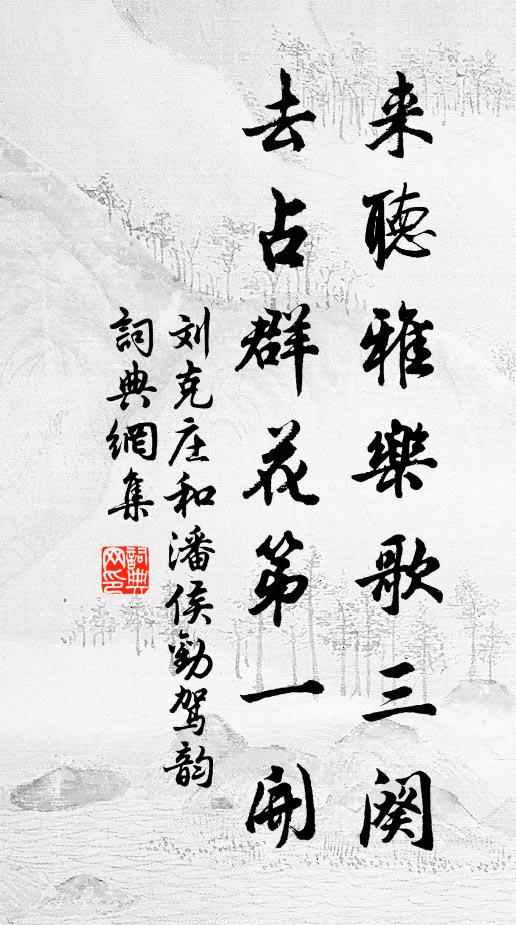 来聽雅樂歌三闋
去占群花第一開
刘克庄和潘侯勸驾韵
詞典網集
詞典网印